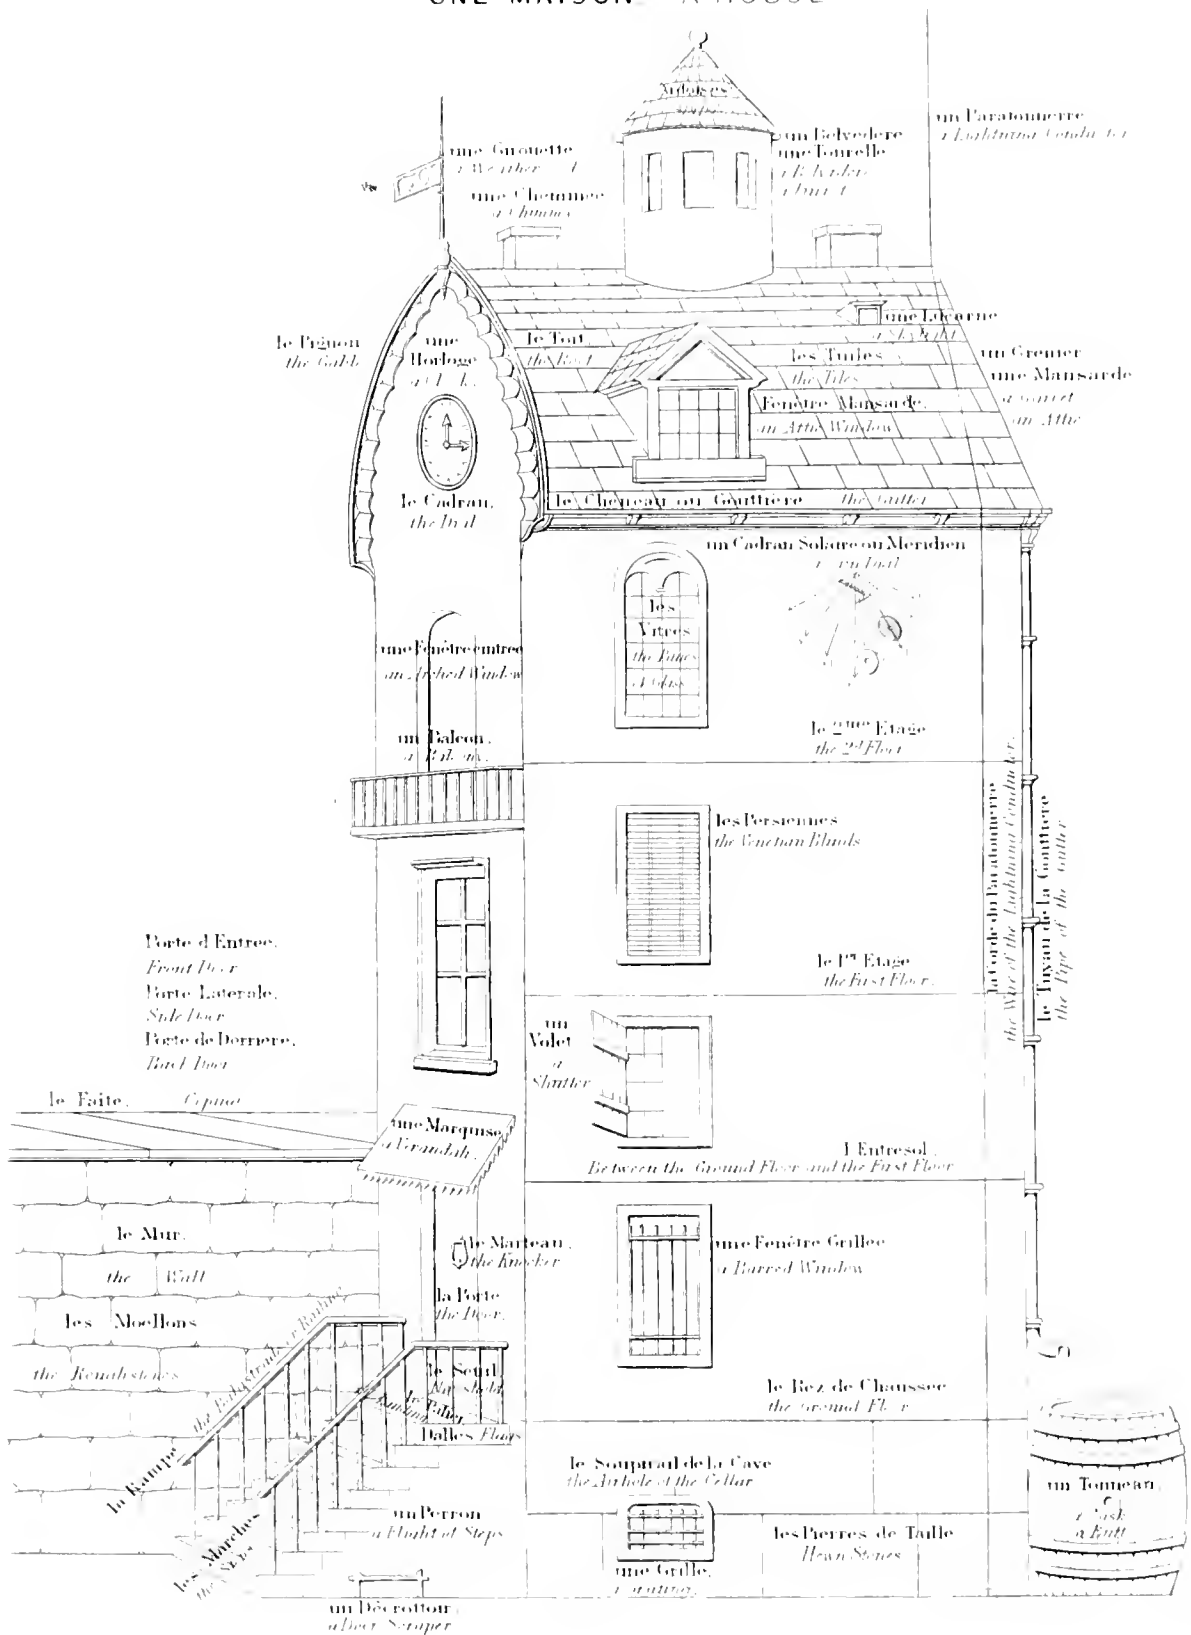 UNE MAISON A HOUSE
Ardoises
un Paratonnerre
a Lightning Conductor
un Belvédère
une Tourelle
a Belvidere
a Turret
une Girouette
a Weather
une Cheminée
a Chimney
le Pignon
the Gable
une
Horloge
a Clock.
le Toit,
the Roof
une Lucarne
a Skylight
les Tuiles
the Tiles
un Grenier
une Mansarde
a Garret
an Attic
Fenêtre Mansarde,
an Attic Window
le Cadran,
the Dial
le Cheneau ou Gouttière the Gutter
un Cadran Solaire ou Meridien
a Sun Dial
les
Vitres
the Panes
of Glass
une Fenêtre cintrée
an Arched Window
un Balcon,
a Balcony,
le 2me Etage
the 2d Floor
les Persiennes
the Venetian Blinds
la Corde du Paratonnerre
the Wire of the Lightning Conductor.
le Tuyau de la Gouttière
the Pipe of the Gutter
Porte d'Entrée,
Front Door
Porte Laterale,
Side Door
Porte de Derrière,
Back Door
le 1er Etage
the First Floor,
un
Volet
a
Shutter
le Faite, Coping
une Marquise
a Verandah,
l'Entresol,
Between the Ground Floor and the First Floor
le Mur,
the Wall
le Marteau,
the Knocker
une Fenêtre Grillée
a Barred Window
la Porte
the Door,
les Moellons
the Roughstones
la Rampe the Balustrade or Railing
le Seuil
le Palier
Landing
Dalles Flags
le Rez de Chaussée
the Ground Floor
le Soupirail de la Cave
the Airhole of the Cellar
un Tonneau,
a Cask
a Butt
un Perron
a Flight of Steps
les Marches
the Steps
les Pierres de Taille
Hewn Stones
une Grille,
a Grating,
un Décrottoir,
a Door Scraper